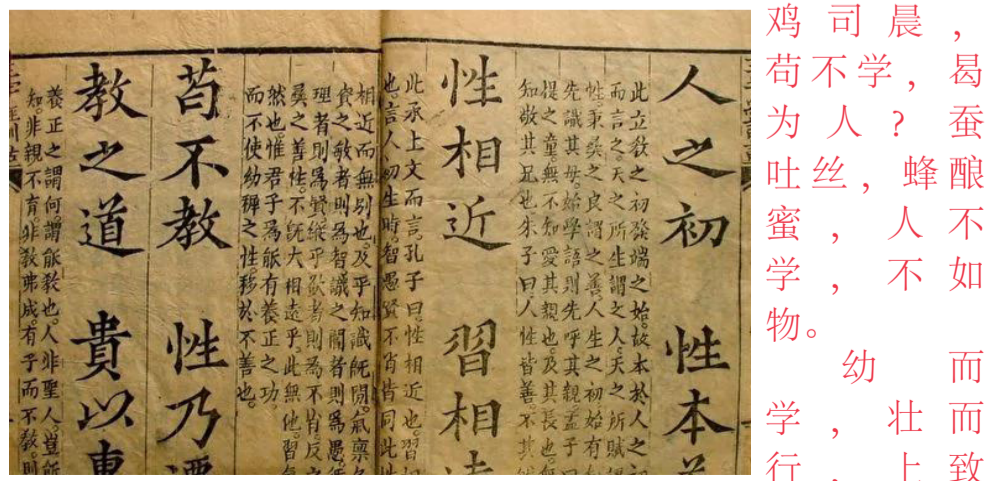 人之初 性本
此立教之初發端之始。故本於人之初
而言之。天之所生謂之人。天之所賦謂
性。秉彝之良謂之善。人生之初始有
先識其母。始學語則先呼其親。孟子曰
提之童。無不知愛其親也。及其長也。無
知敬其兄也。朱子曰人性皆善。不其
性相近 習相
此承上文而言。孔子曰。性相近也。習相
也。言人初生時。智愚賢不肖皆同此性
相近而無別也。及乎知識旣開。氣稟
資之敏者則爲智。識之闇者則爲愚。
理者則爲賢。縱乎欲者則爲不肖。反
彝之善性。不旣大相遠乎。此無他。習氣
然也。惟君子爲能有養正之功。
而不使幼穉之性。移於不善也。
苟不教 性乃
教之道 貴以
養正之謂何。謂能敎也。人非聖人。豈
知非親不育。非敎弗成。有子而不敎。則
鸡司晨，
苟不学，曷
为人？蚕
吐丝，蜂酿
蜜，人不
学，不如
物。
幼而
学，壮而
行，上致